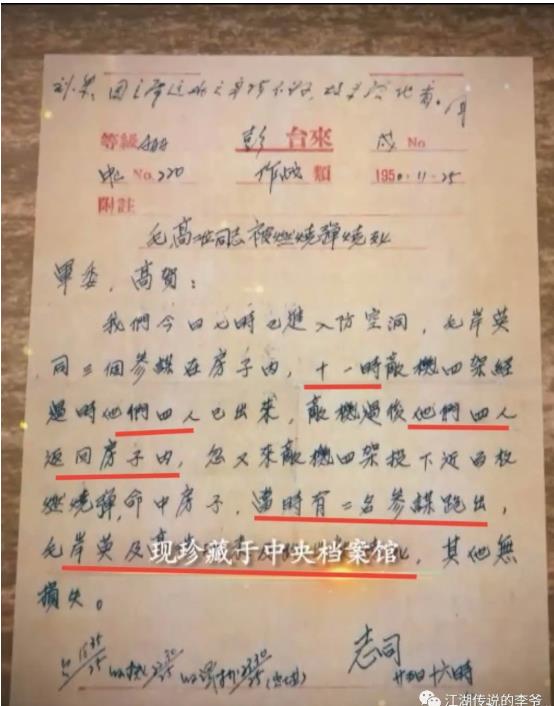 等級 彭 台來 戌 No
No. 220 作戰 類 1950.11-25
附註
毛高二同志被燃燒彈燒死
軍委,高賀:
我們今日七時已進入防空洞,毛岸英
同三個參謀在房子內,十一時敵機四架經
過時他們四人已出來,敵機過後他們四人
返回房子內,忽又來敵機四架投下近百枚
燃燒彈,命中房子,當時有二名參謀跑出,
毛岸英及高
现珍藏于中央档案馆
其他無
損失。
志司
廿五日十六時
江湖传说的李爷